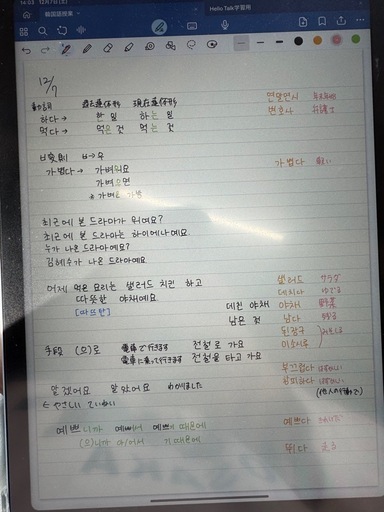 14:03 12月7日(土)
韓国語授業
HelloTalk学習用
12/7
動詞 過去連体形 現在連体形
하다 → 한 일 하는 일
먹다 → 먹은 것 먹는 것
연말연시 年末年始
변호사 弁護士
ㅂ変則 ㅂ→우
가볍다 → 가벼워요
가벼우면
가볍다 軽い
최근에 본 드라마가 뭐예요?
최근에 본 드라마는 하이에나예요.
누가 나온 드라마예요?
김혜수가 나온 드라마예요
어제 먹은 요리는 샐러드 치킨 하고
따뜻한 야채예요.
[따뜨탄]
데친 야채
남은 것
샐러드 サラダ
데치다 ゆでる
야채 野菜
남다 残る
된장국
미소시루 みそしる
手段 (으)로 電車で行きます 전철로 가요
電車に乗って行きます 전철을 타고 가요
부끄럽다 はずかしい
창피하다 はずかしい
(他人の行動で)
알겠어요 알았어요 わかりました
← やさしい ていねい
예쁘니까 예뻐서 예쁘기 때문에
(으)니까 아/어서 기 때문에
예쁘다 きれいだ
뛰다 走る